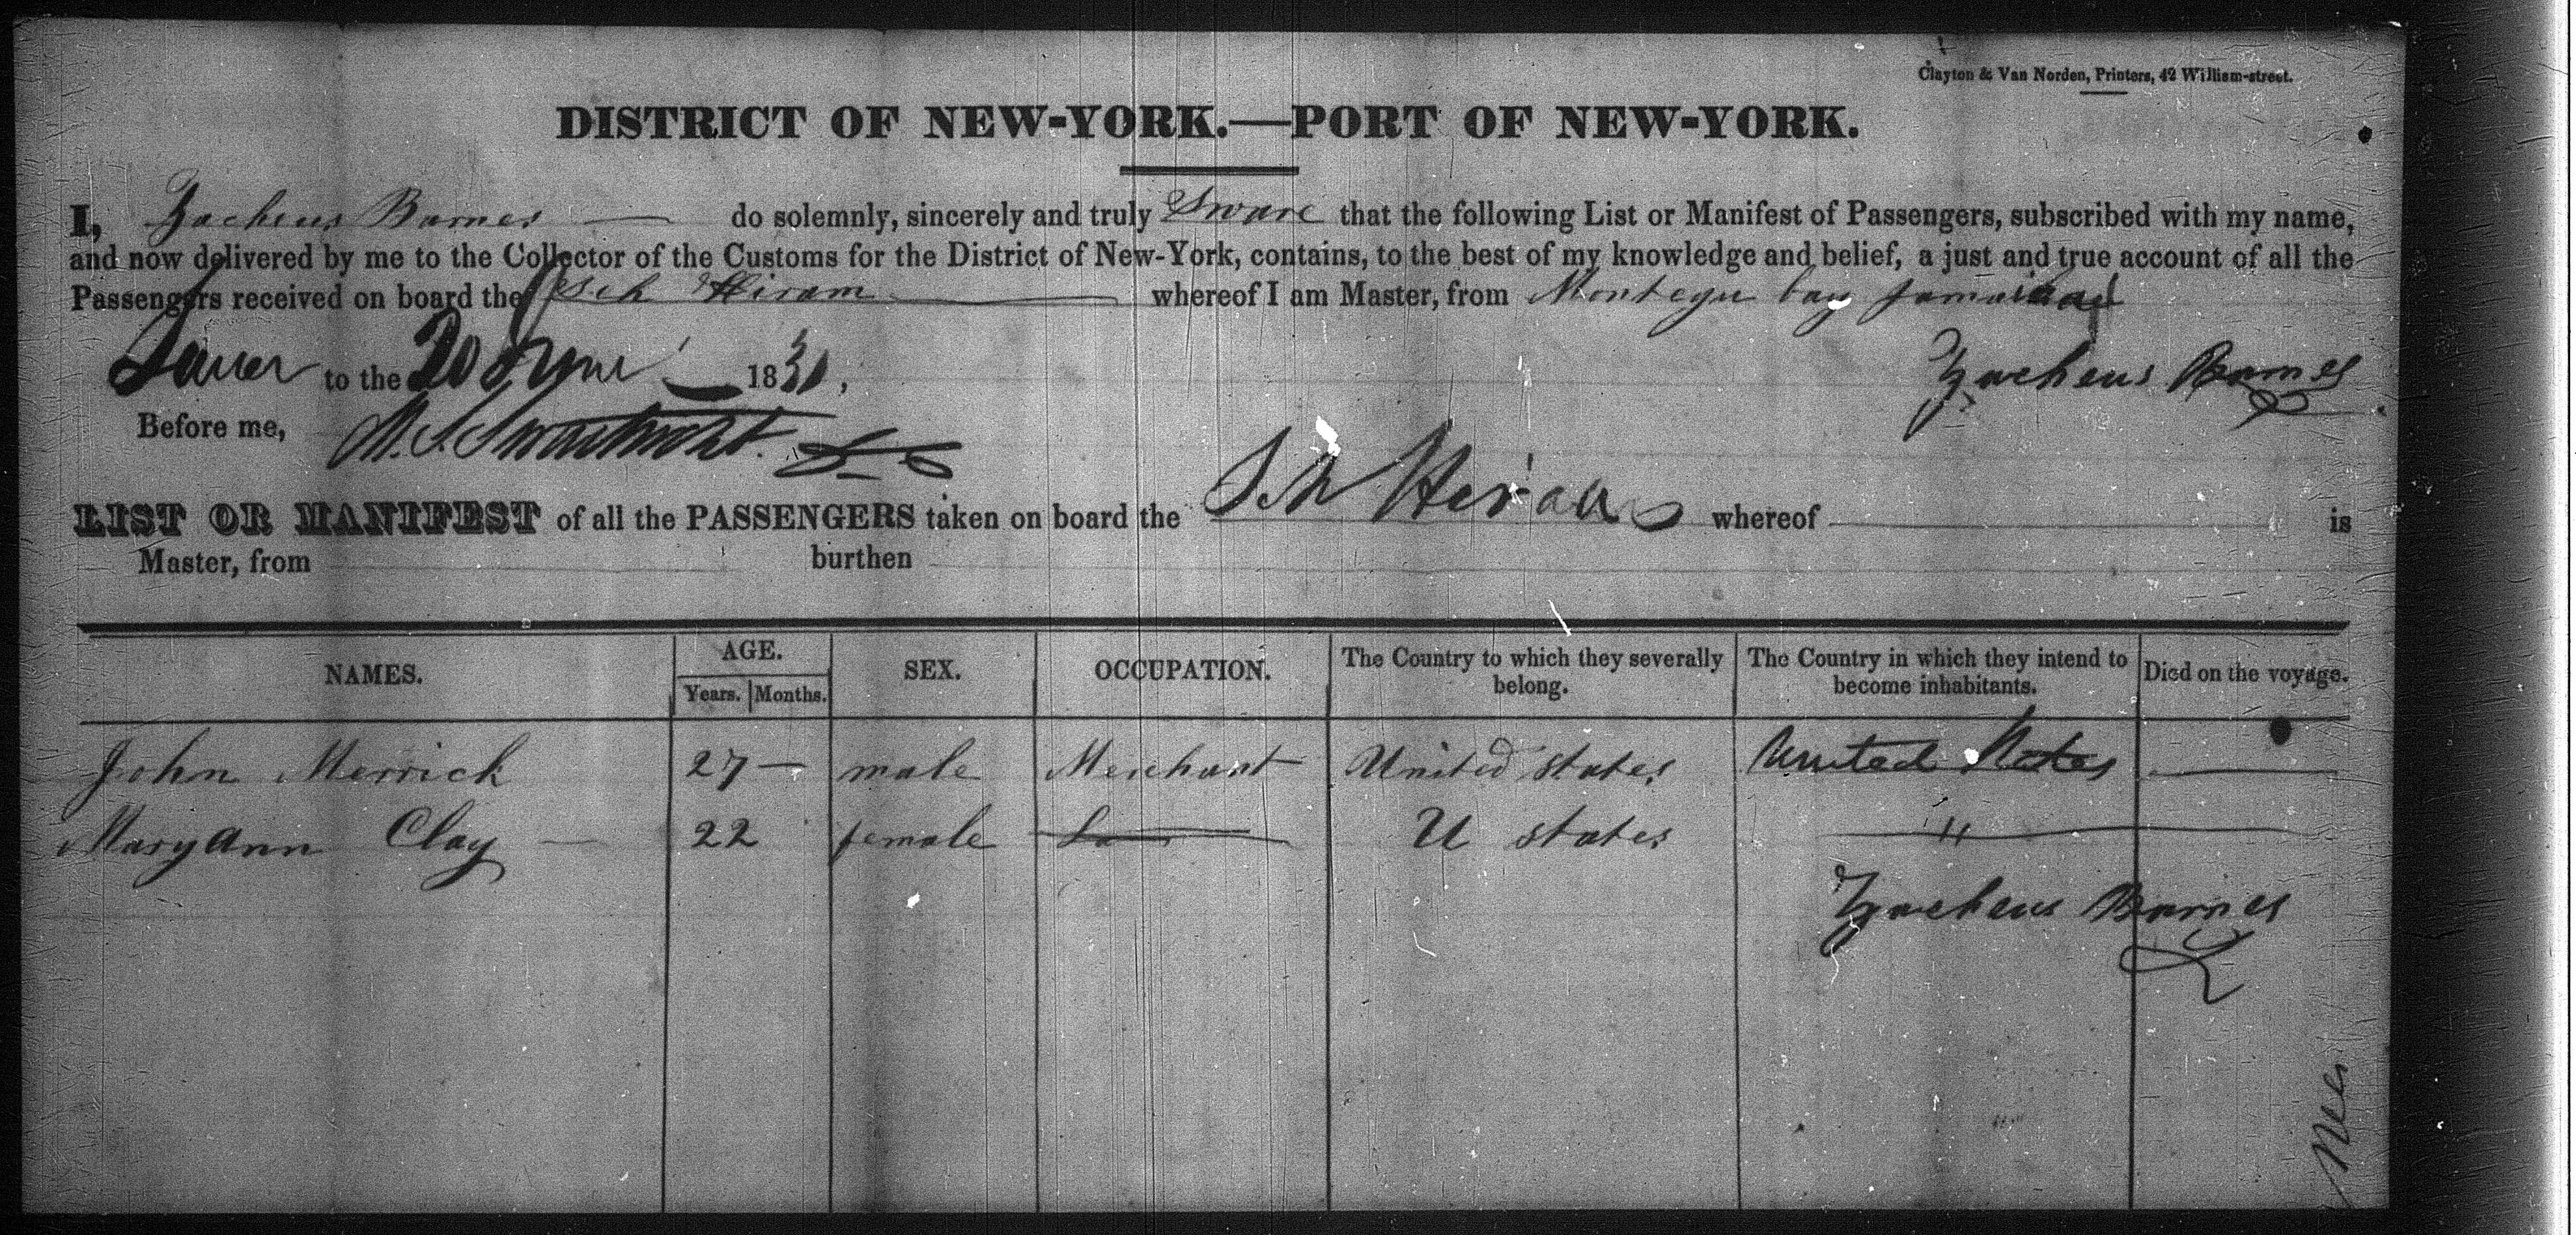 Clayton & Van Norden, Printers, 42 William-street.
DISTRICT OF NEW-YORK.—PORT OF NEW-YORK.
I, Zacheus Barnes — do solemnly, sincerely and truly Sware that the following List or Manifest of Passengers, subscribed with my name,
and now delivered by me to the Collector of the Customs for the District of New-York, contains, to the best of my knowledge and belief, a just and true account of all the
Passengers received on board the Sch Hiram — whereof I am Master, from Montegu bay Jamaica
to the 20 June 1831,
Zacheus Barnes
Before me, M. S. Swartwout
LIST OR MANIFEST of all the PASSENGERS taken on board the Sch Hiram whereof is
Master, from burthen
NAMES. AGE. Years. Months. SEX. OCCUPATION. The Country to which they severally belong. The Country in which they intend to become inhabitants. Died on the voyage.
John Merrick 27 — male Merchant United states United States —
Mary Ann Clay — 22 female U states "
Zacheus Barnes